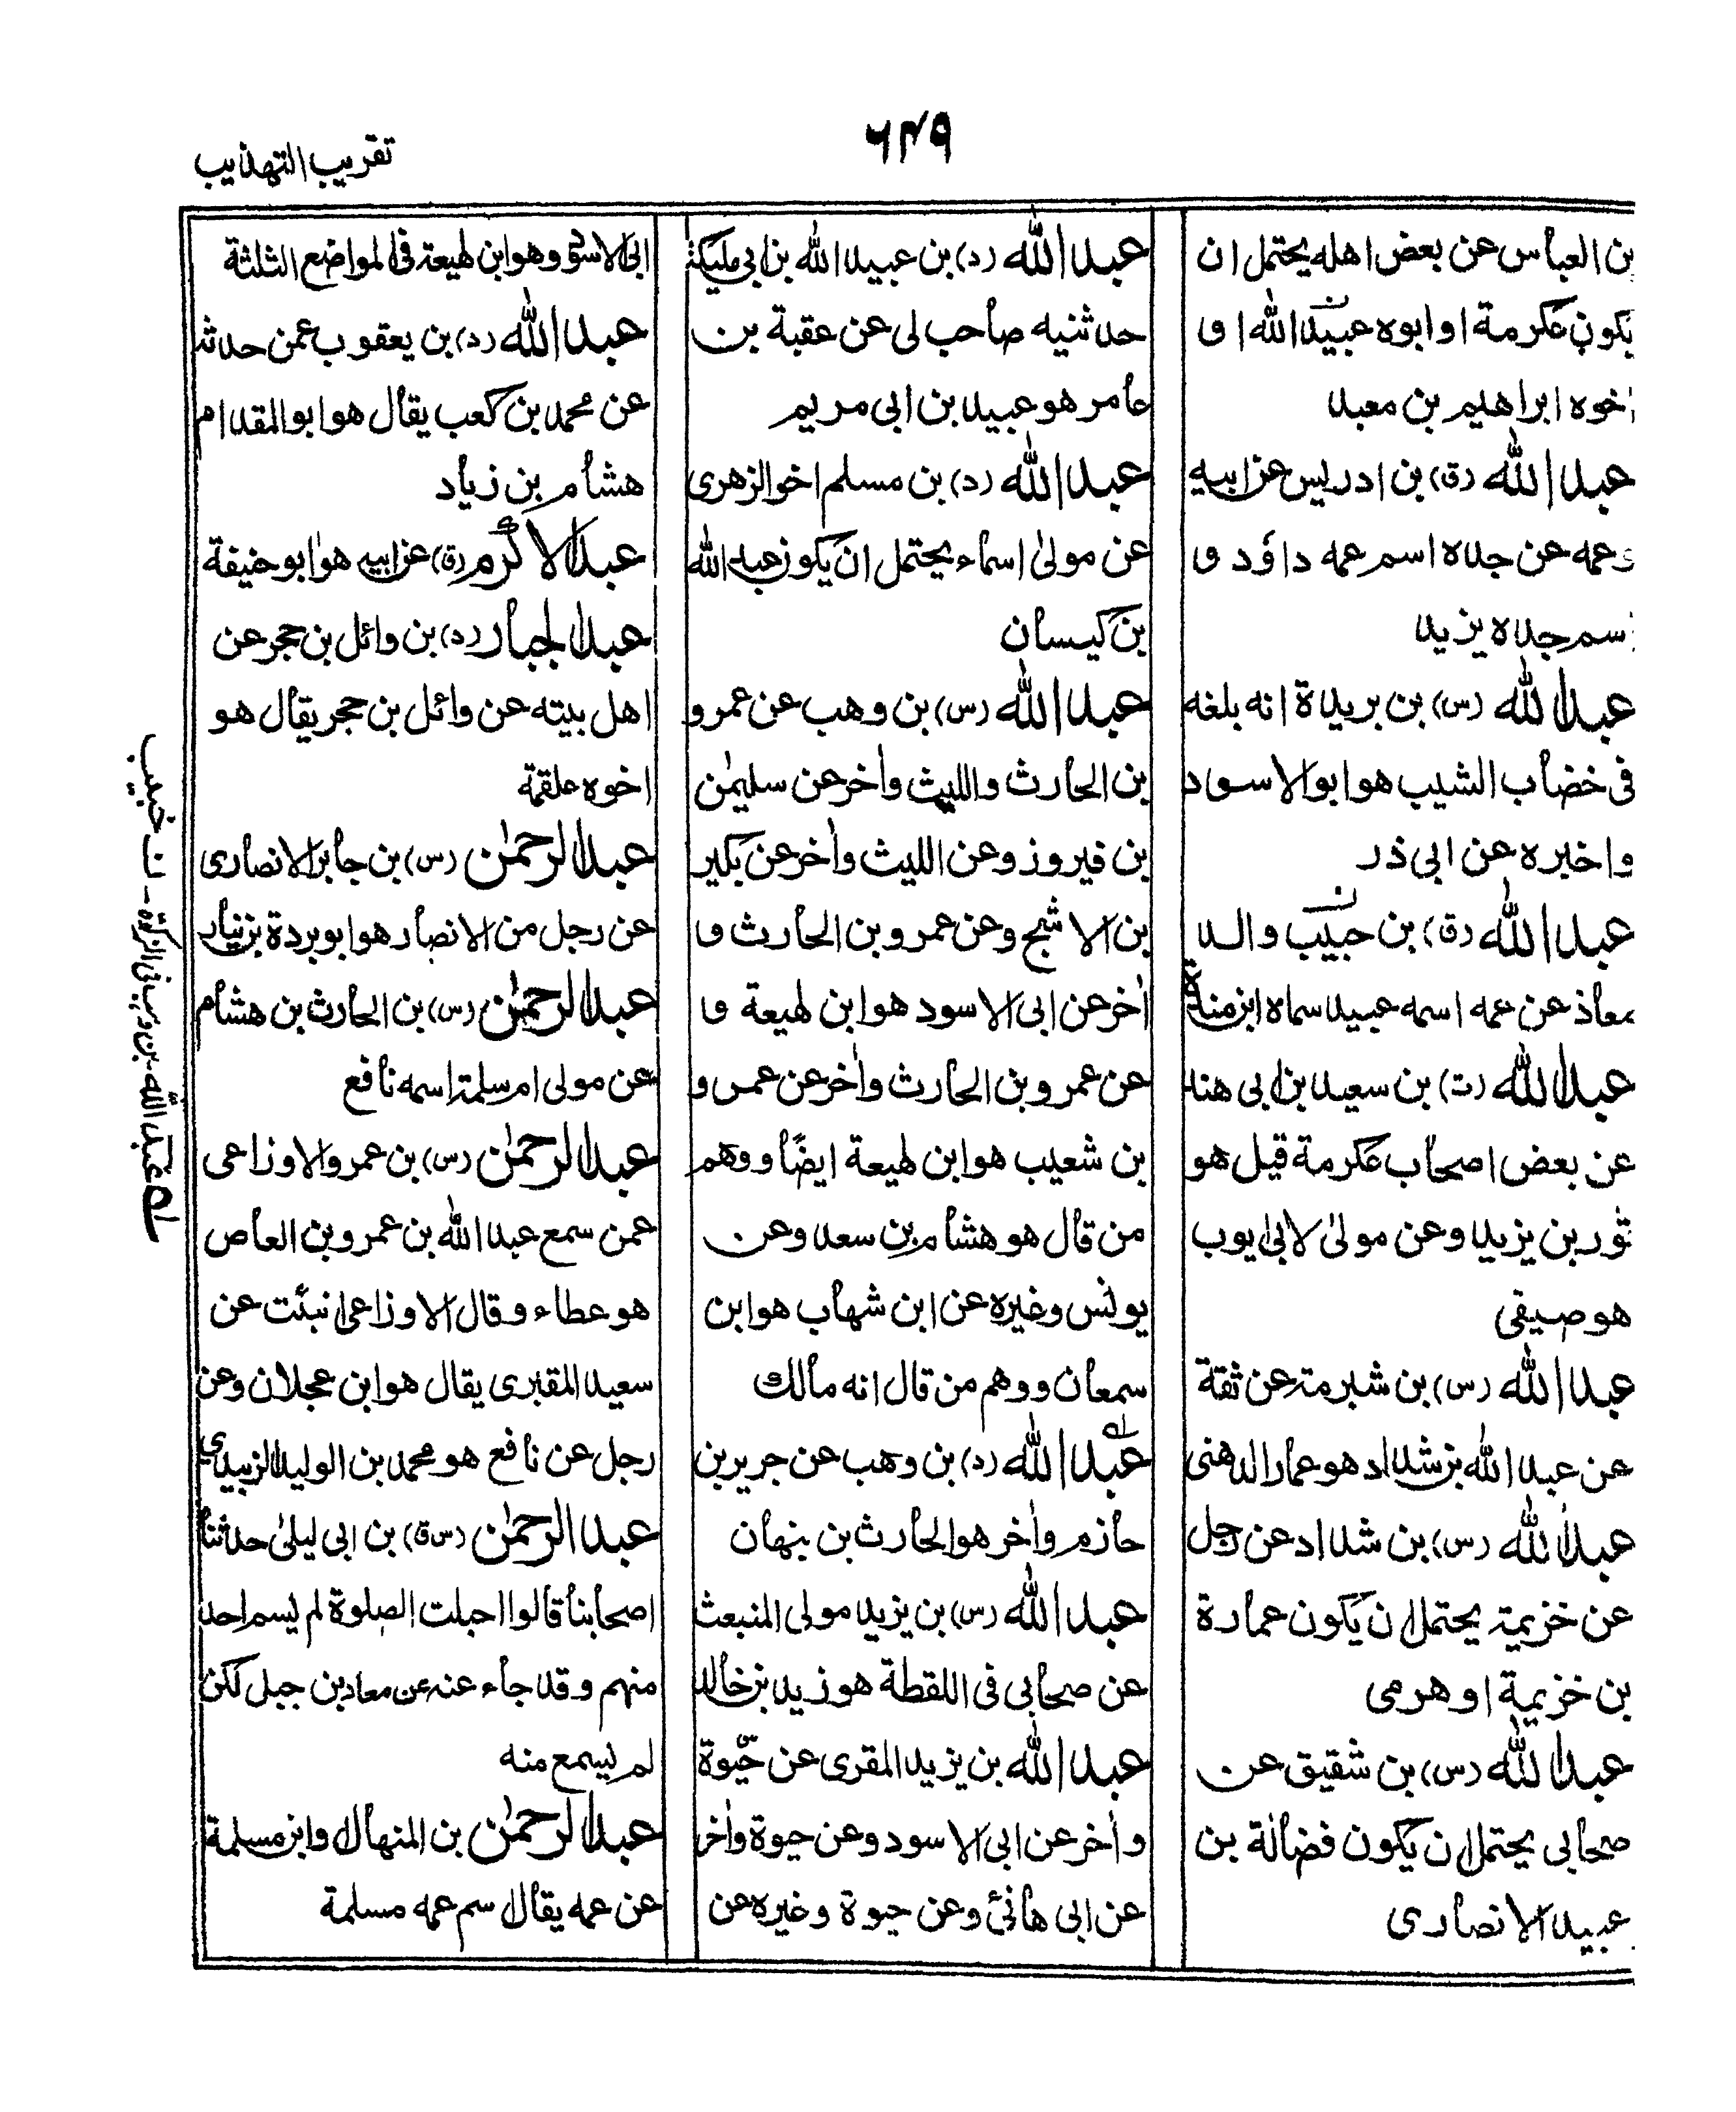 تقريب التهذيب
٦٤٩
بن العباس عن بعض اهله يحتمل ان
يكون عكرمة او ابوه عبيد الله او
اخوه ابراهيم بن معبد
عبد الله (ق) بن ادريس عن ابيه
وعمه عن جده اسم عمه داؤد و
اسم جده يزيد
عبد الله (س) بن بريدة انه بلغه
فى خضاب الشيب هو ابو الاسود
واخبره عن ابى ذر
عبد الله (ق) بن حبيب والد
معاذ عن عمه اسمه عبيد سماه ابن مندة
عبد الله (ت) بن سعيد بن ابى هند
عن بعض اصحاب عكرمة قيل هو
ثور بن يزيد وعن مولىٰ لابى ايوب
هو صيفى
عبد الله (س) بن شبرمة عن ثقة
عن عبد الله بن شداد هو عمار الدهنى
عبد الله (س) بن شداد عن رجل
عن خزيمة يحتمل ان يكون عمارة
بن خزيمة او هرمى
عبد الله (س) بن شقيق عن
صحابى يحتمل ان يكون فضالة بن
عبيد الانصارى
عبد الله (د) بن عبيد الله بن ابى مليكة
حدثنيه صاحب لى عن عقبة بن
عامر هو عبيد بن ابى مريم
عبد الله (د) بن مسلم اخو الزهرى
عن مولىٰ اسماء يحتمل ان يكون عبد الله
بن كيسان
عبد الله (س) بن وهب عن عمرو
بن الحارث والليث وأخر عن سليمٰن
بن فيروز وعن الليث وأخر عن بكير
بن الاشج وعن عمرو بن الحارث و
أخر عن ابى الاسود هو ابن لهيعة و
عن عمرو بن الحارث وأخر عن عمرو
بن شعيب هو ابن لهيعة ايضًا ووهم
من قال هو هشام بن سعد وعن
يونس وغيره عن ابن شهاب هو ابن
سمعان ووهم من قال انه مالك
عبد الله (د) بن وهب عن جرير بن
حازم وأخر هو الحارث بن نبهان
عبد الله (س) بن يزيد مولى المنبعث
عن صحابى فى اللقطة هو زيد بن خالد
عبد الله بن يزيد المقرى عن حيوة
وأخر عن ابى الاسود وعن حيوة وأخر
عن ابى هانئ وعن حيوة وغيره عن
ابى الاسود وهو ابن لهيعة فى المواضع الثلثة
عبد الله (د) بن يعقوب عمن حدثه
عن محمد بن كعب يقال هو ابو المقدام
هشام بن زياد
عبد الاكرم (ق) عن ابيه هو ابو حنيفة
عبد الجبار (د) بن وائل بن حجر عن
اهل بيته عن وائل بن حجر يقال هو
اخوه علقمة
عبد الرحمٰن (س) بن جابر الانصارى
عن رجل من الانصار هو ابو بردة بن نيار
عبد الرحمٰن (س) بن الحارث بن هشام
عن مولى ام سلمة اسمه نافع
عبد الرحمٰن (س) بن عمرو الاوزاعى
عمن سمع عبد الله بن عمرو بن العاص
هو عطاء وقال الاوزاعى انبئت عن
سعيد المقبرى يقال هو ابن عجلان وعن
رجل عن نافع هو محمد بن الوليد الزبيدى
عبد الرحمٰن (س ق) بن ابى ليلىٰ حدثنا
اصحابنا قالوا احيلت الصلوة لم يسم احد
منهم وقد جاء عنه عن معاذ بن جبل لكن
لم يسمع منه
عبد الرحمٰن بن المنهال وابن مسلمة
عن عمه يقال اسم عمه مسلمة
ن خبيب
له عبد الله بن وهب فى الزكوة -